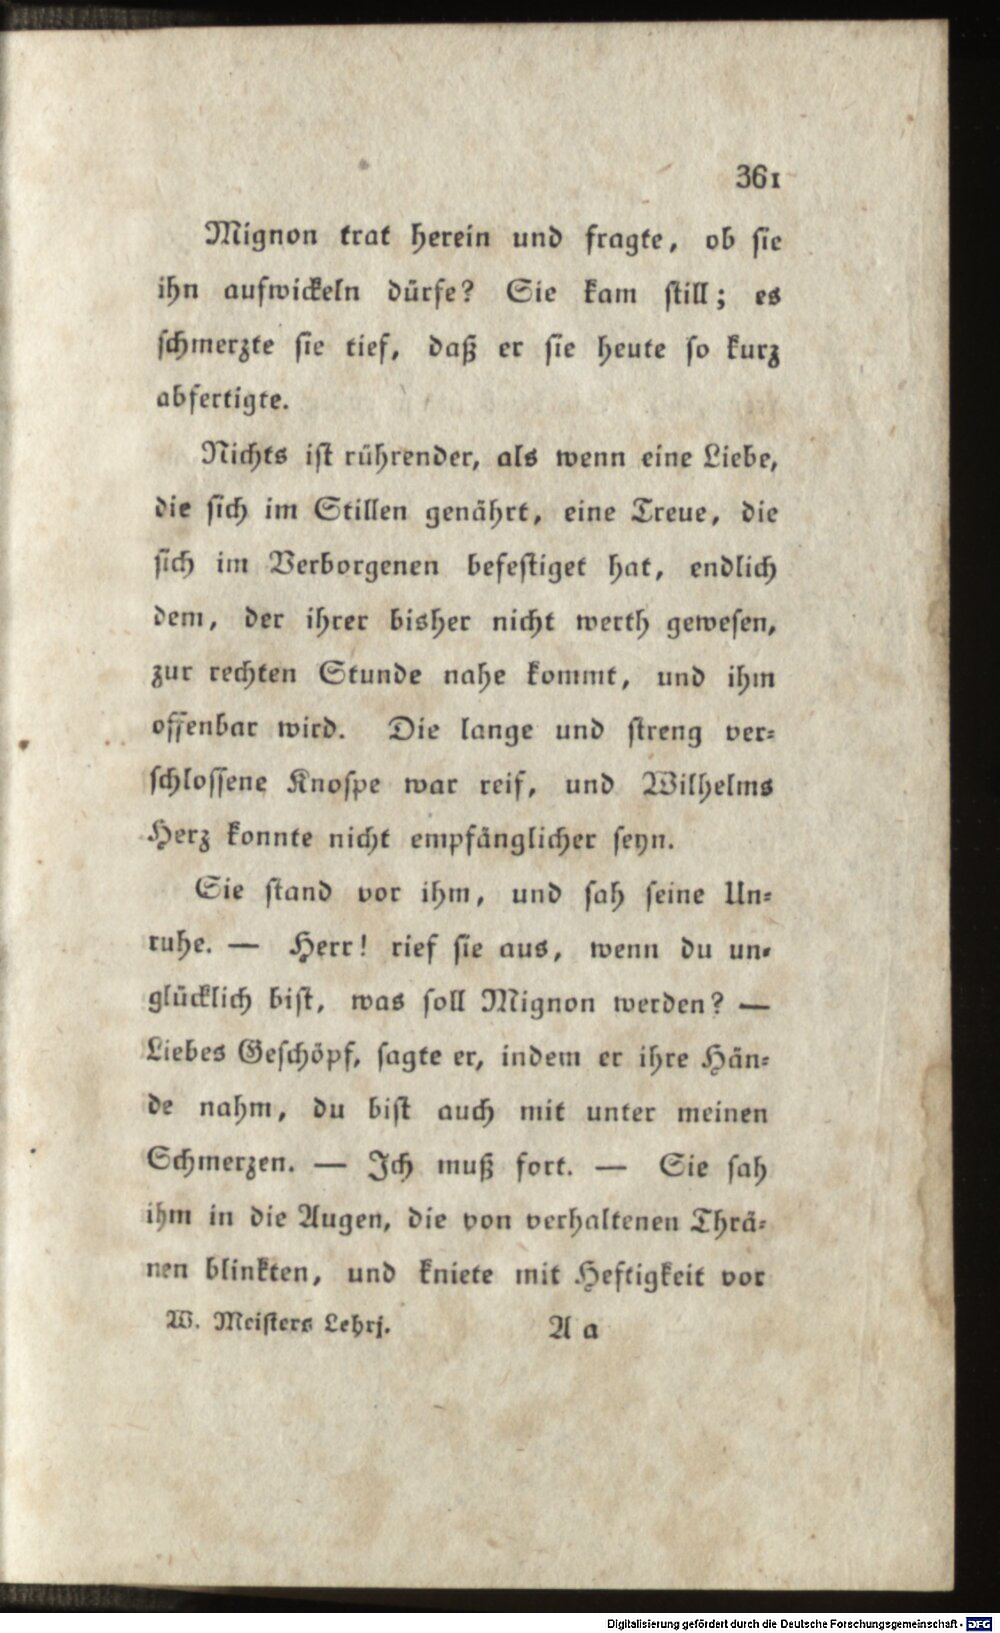 361
Mignon trat herein und fragte, ob sie
ihn aufwickeln dürfe? Sie kam still; es
schmerzte sie tief, daß er sie heute so kurz
abfertigte.
Nichts ist rührender, als wenn eine Liebe,
die sich im Stillen genährt, eine Treue, die
sich im Verborgenen befestiget hat, endlich
dem, der ihrer bisher nicht werth gewesen,
zur rechten Stunde nahe kommt, und ihm
offenbar wird. Die lange und streng ver-
schlossene Knospe war reif, und Wilhelms
Herz konnte nicht empfänglicher seyn.
Sie stand vor ihm, und sah seine Un-
ruhe. — Herr! rief sie aus, wenn du un-
glücklich bist, was soll Mignon werden? —
Liebes Geschöpf, sagte er, indem er ihre Hän-
de nahm, du bist auch mit unter meinen
Schmerzen. — Ich muß fort. — Sie sah
ihm in die Augen, die von verhaltenen Thrä-
nen blinkten, und kniete mit Heftigkeit vor
W. Meisters Lehrj. A a
Digitalisierung gefördert durch die Deutsche Forschungsgemeinschaft - DFG